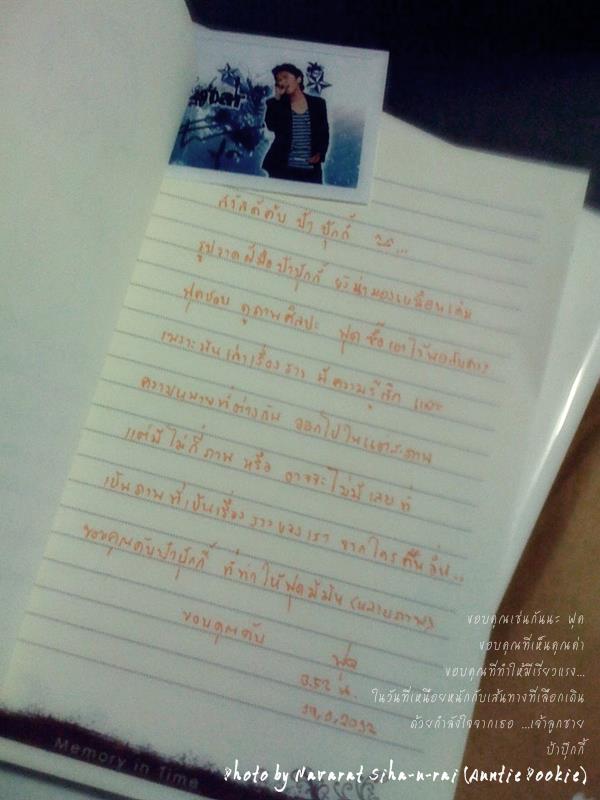 สวัสดีคับ ป้า ปุ๊กกี้ ...
รูปวาดฝีมือป้าปุ๊กกี้ ยังน่ามองเหมือนเดิม
ฟุตชอบ ดูภาพศิลปะ ฟุต ซื้อเอาไว้
เพราะมันเล่าเรื่องราว มีความรู้สึก และ
ความหมายที่ต่างกัน ออกไปในแต่ละภาพ
แต่มี ไม่กี่ภาพ หรือ อาจจะไม่มี เลยที่
เป็นภาพ ที่เป็นเรื่องราวของเรา จากใครคนอื่น..
ขอบคุณคับป้าปุ๊กกี้ ที่ทำให้ฟุตมีมัน (หลายภาพ)
ขอบคุณคับ
ฟุต
3.52 น.
.2012
Memory in Time
ขอบคุณเช่นกันนะ ฟุต
ขอบคุณที่เห็นคุณค่า
ขอบคุณที่ทำให้มีเรี่ยวแรง...
ในวันที่เหนื่อยหนักกับเส้นทางที่เลือกเดิน
ด้วยกำลังใจจากเธอ ...เจ้าลูกชาย
ป้าปุ๊กกี้
Photo by Nararat Siha-n-rai (Auntie Pookie)